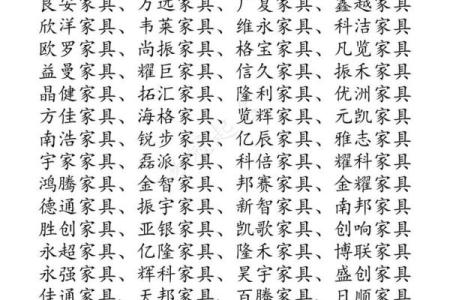 良安家具、万远家具、广夏家具、鑫越家具、
欣洋家具、韦莱家具、维永家具、科洁家具、
欧罗家具、尚振家具、格宝家具、凡览家具、
益曼家具、耀巨家具、信久家具、振禾家具、
晶健家具、拓汇家具、隆利家具、优洲家具、
方佳家具、海格家具、览辉家具、元凯家具、
南浩家具、锐步家具、亿辰家具、雅志家具、
宇家家具、磊派家具、科倍家具、耀科家具、
鸿腾家具、金智家具、邦赛家具、金耀家具、
德通家具、振宇家具、新智家具、南邦家具、
胜创家具、亚银家具、凯歌家具、创响家具、
永超家具、亿隆家具、隆禾家具、博联家具、
永强家具、辉科家具、昊宇家具、盛创家具、
佳通家具、天邦家具、百腾家具、日顺家具、